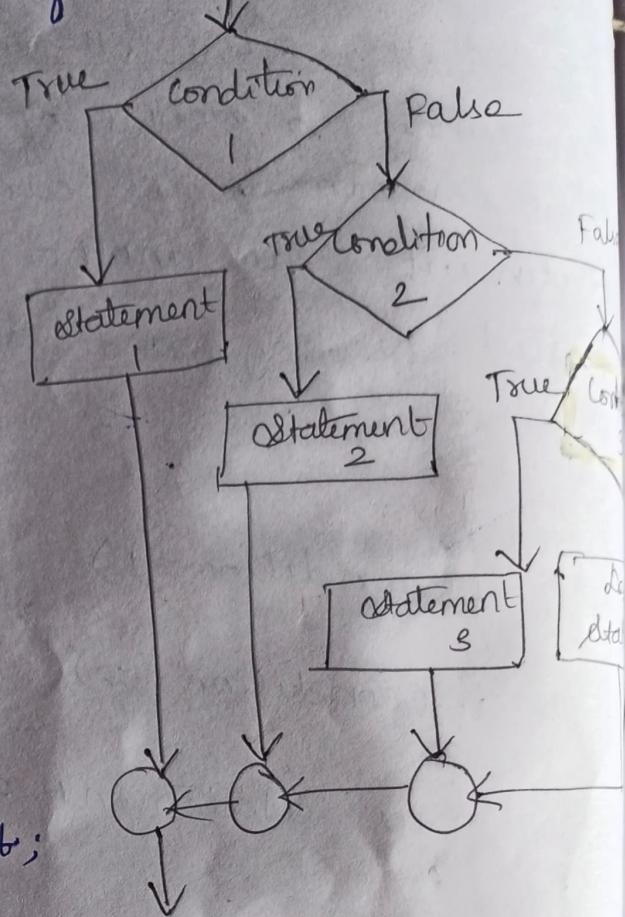 True
Condition
1
False
True
Condition
2
True
Statement
1
Statement
2
Statement
3